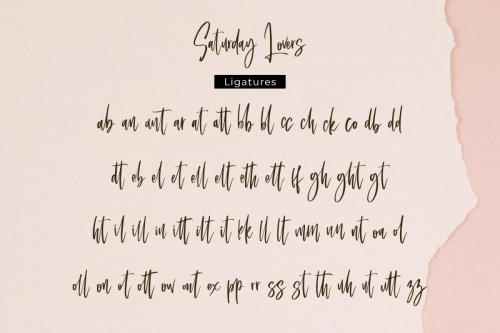 Saturday Lovers
Ligatures
ab an ant ar at att bb bl cc ch ck co db dd
dt eb el et ell elt eth ett ff gh ght gt
ht il ill in itt ilt it kk ll lt mm un nt oa ol
oll on ot ott ow ont ox pp rr ss st th uh ut utt zz